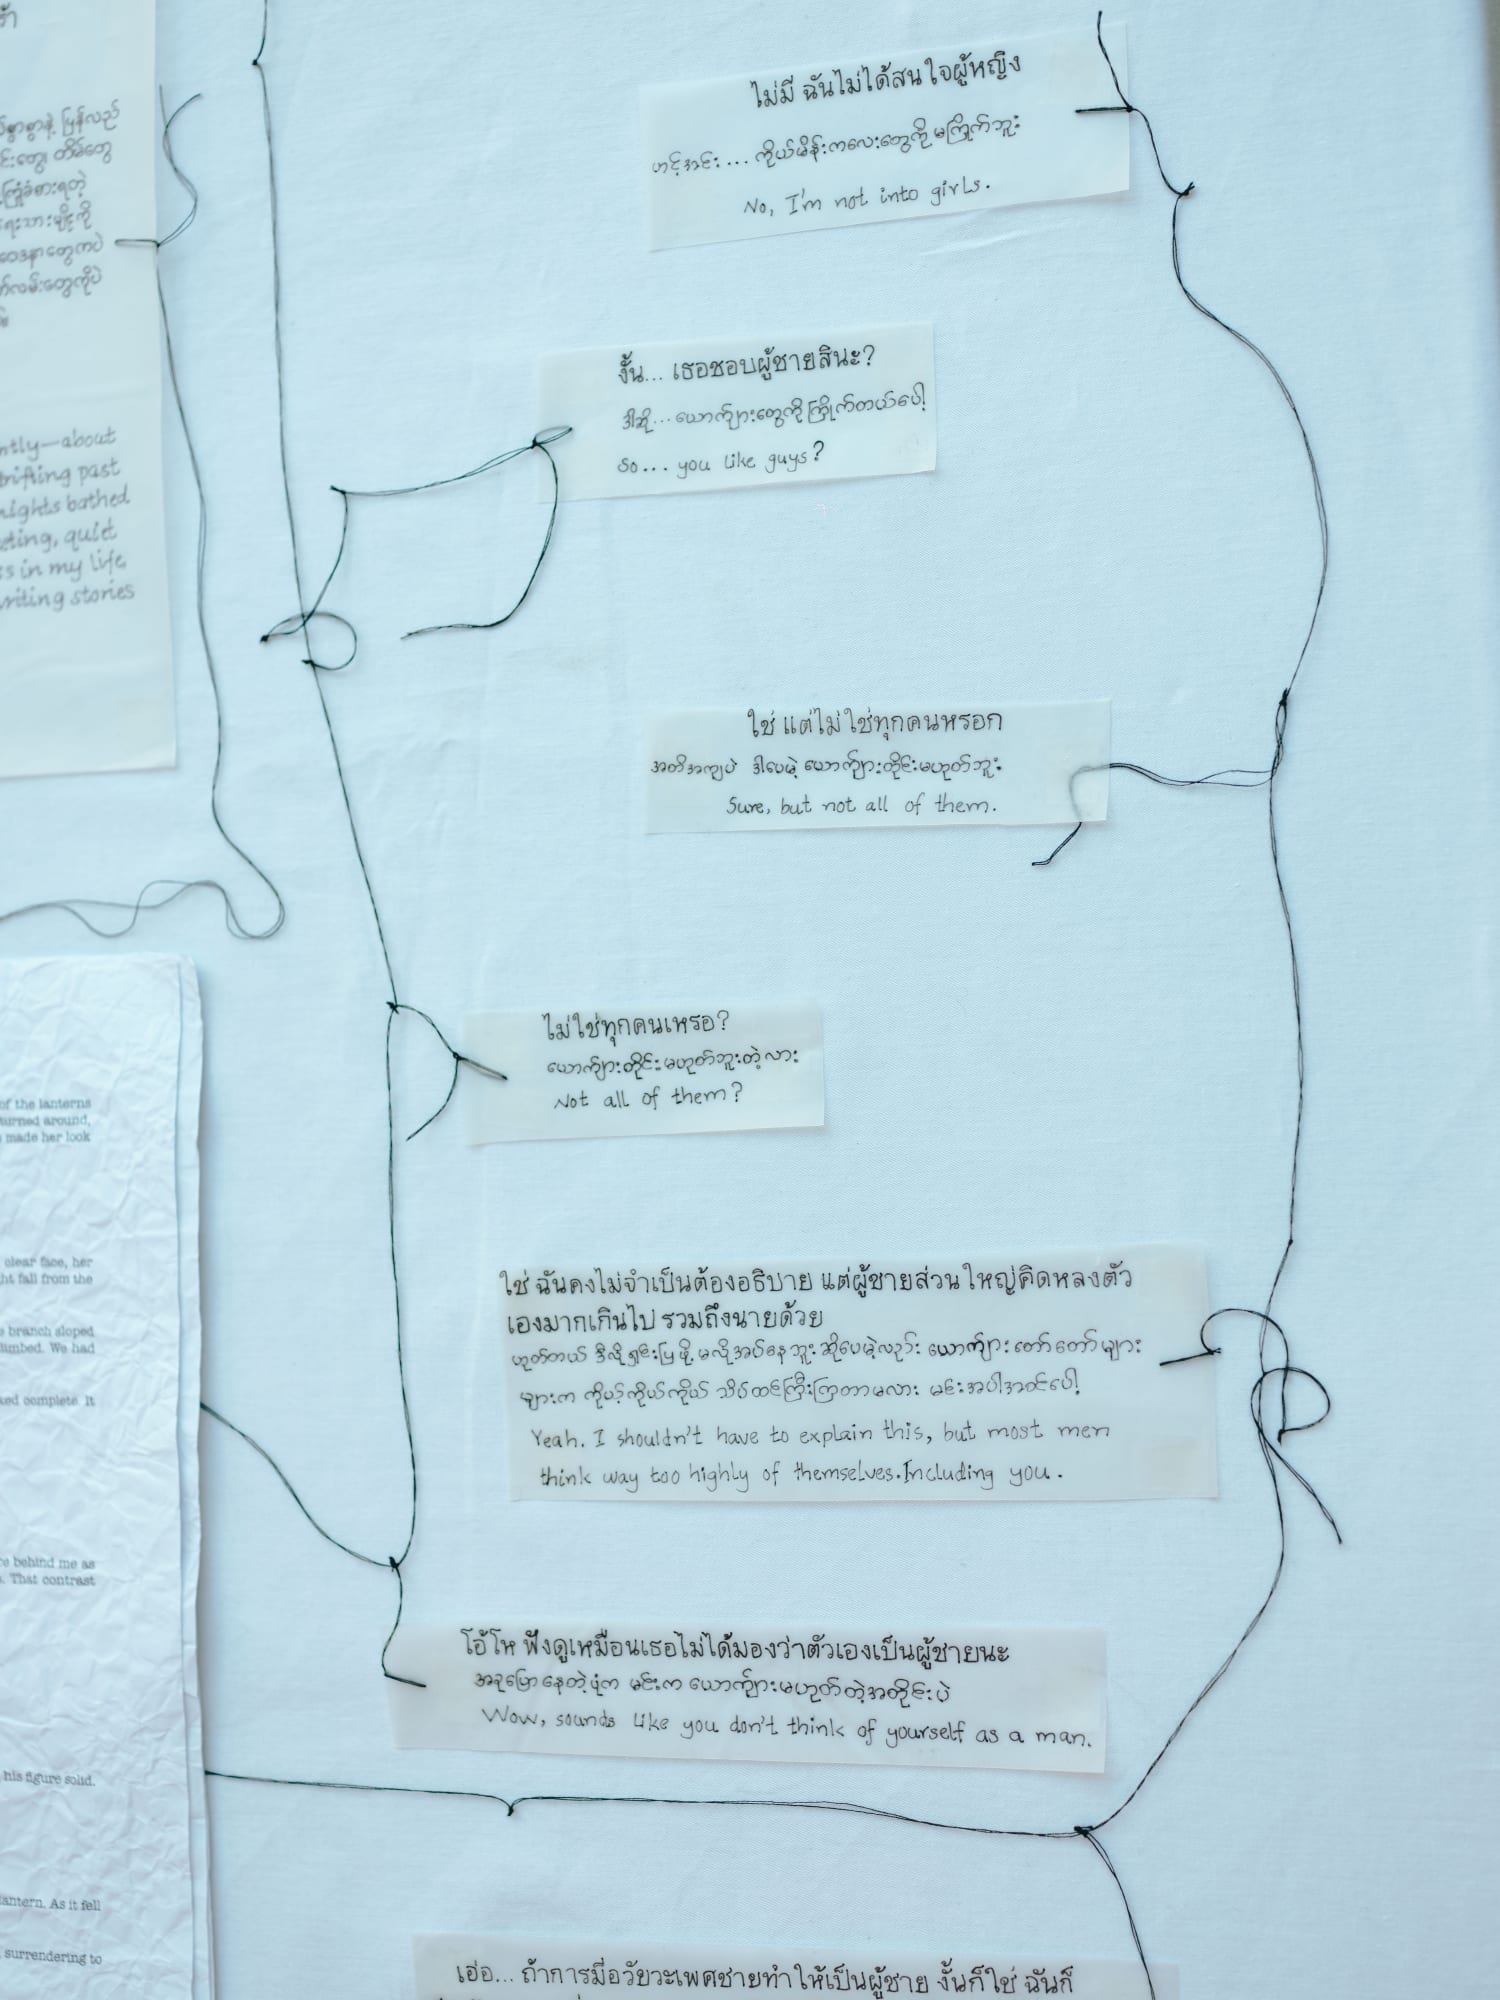 ไม่มี ฉันไม่ได้สนใจผู้หญิง
ဟင့်အင်း... ကိုယ်မိန်းကလေးတွေကို မကြိုက်ဘူး
No, I'm not into girls.
งั้น... เธอชอบผู้ชายสินะ?
ဒါဆို... ယောက်ျားတွေကို ကြိုက်တယ်ပေါ့
So... you like guys?
ใช่ แต่ไม่ใช่ทุกคนหรอก
အတိအကျပဲ ဒါပေမဲ့ ယောက်ျားတိုင်းမဟုတ်ဘူး
Sure, but not all of them.
ไม่ใช่ทุกคนเหรอ?
ယောက်ျားတိုင်းမဟုတ်ဘူးတဲ့လား
Not all of them?
ใช่ ฉันคงไม่จำเป็นต้องอธิบาย แต่ผู้ชายส่วนใหญ่คิดหลงตัว
เองมากเกินไป รวมถึงนายด้วย
ဟုတ်တယ် ဒီလိုရှင်းပြဖို့ မလိုအပ်နေဘူး ဆိုပေမဲ့လည်း ယောက်ျား တော်တော်များ
များက ကိုယ့်ကိုယ်ကိုယ် သိပ်ထင်ကြီးကြတာမလား မင်းအပါအဝင်ပေါ့
Yeah. I shouldn't have to explain this, but most men
think way too highly of themselves. Including you.
โอ้โห ฟังดูเหมือนเธอไม่ได้มองว่าตัวเองเป็นผู้ชายนะ
အခုပြောနေတဲ့ပုံက မင်းက ယောက်ျားမဟုတ်တဲ့အတိုင်းပဲ
Wow, sounds like you don't think of yourself as a man.
เอ่อ... ถ้าการมีอวัยวะเพศชายทำให้เป็นผู้ชาย งั้นก็ใช่ ฉันก็
ntly—about
drifting past
nights bathed
eting, quiet
s in my life
writing stories
of the lanterns
turned around,
made her look
clear face, her
ht fall from the
branch sloped
limbed. We had
ked complete. It
e behind me as
. That contrast
his figure solid.
lantern. As it fell
surrendering to